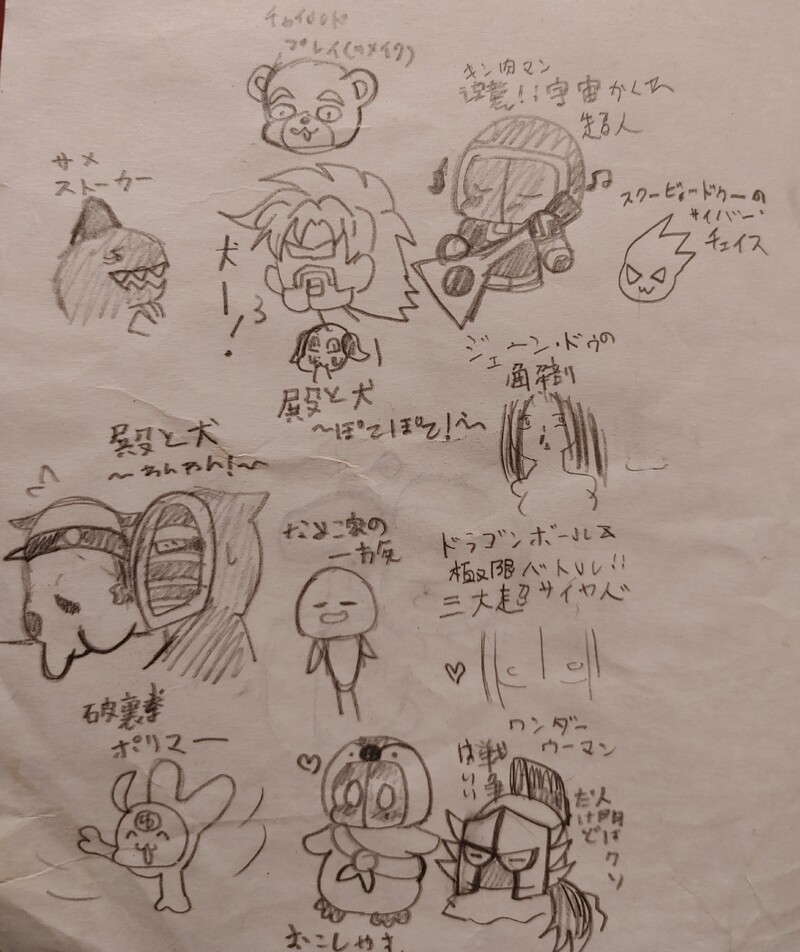 チャイルド
プレイ(リメイク)
キン肉マン
逆襲!!宇宙かくれ
超人
サメ
ストーカー
スクービードゥーの
サイバー・
チェイス
犬ーー!
殿と犬
〜ぽてぽて!〜
ジェーン・ドウの
解剖
殿と犬
〜わんわん!〜
なめこ家の
一お気
ドラゴンボールZ
極限バトル!!
三大超サイヤ人
破裏拳
ポリマー
ワンダー
ウーマン
戦争
はいい
人間はクソ
だけど
おこしやす